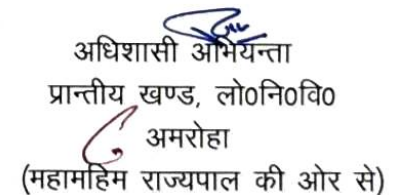 अधिशासी अभियन्ता
प्रान्तीय खण्ड, लो0नि0वि0
अमरोहा
(महामहिम राज्यपाल की ओर से)